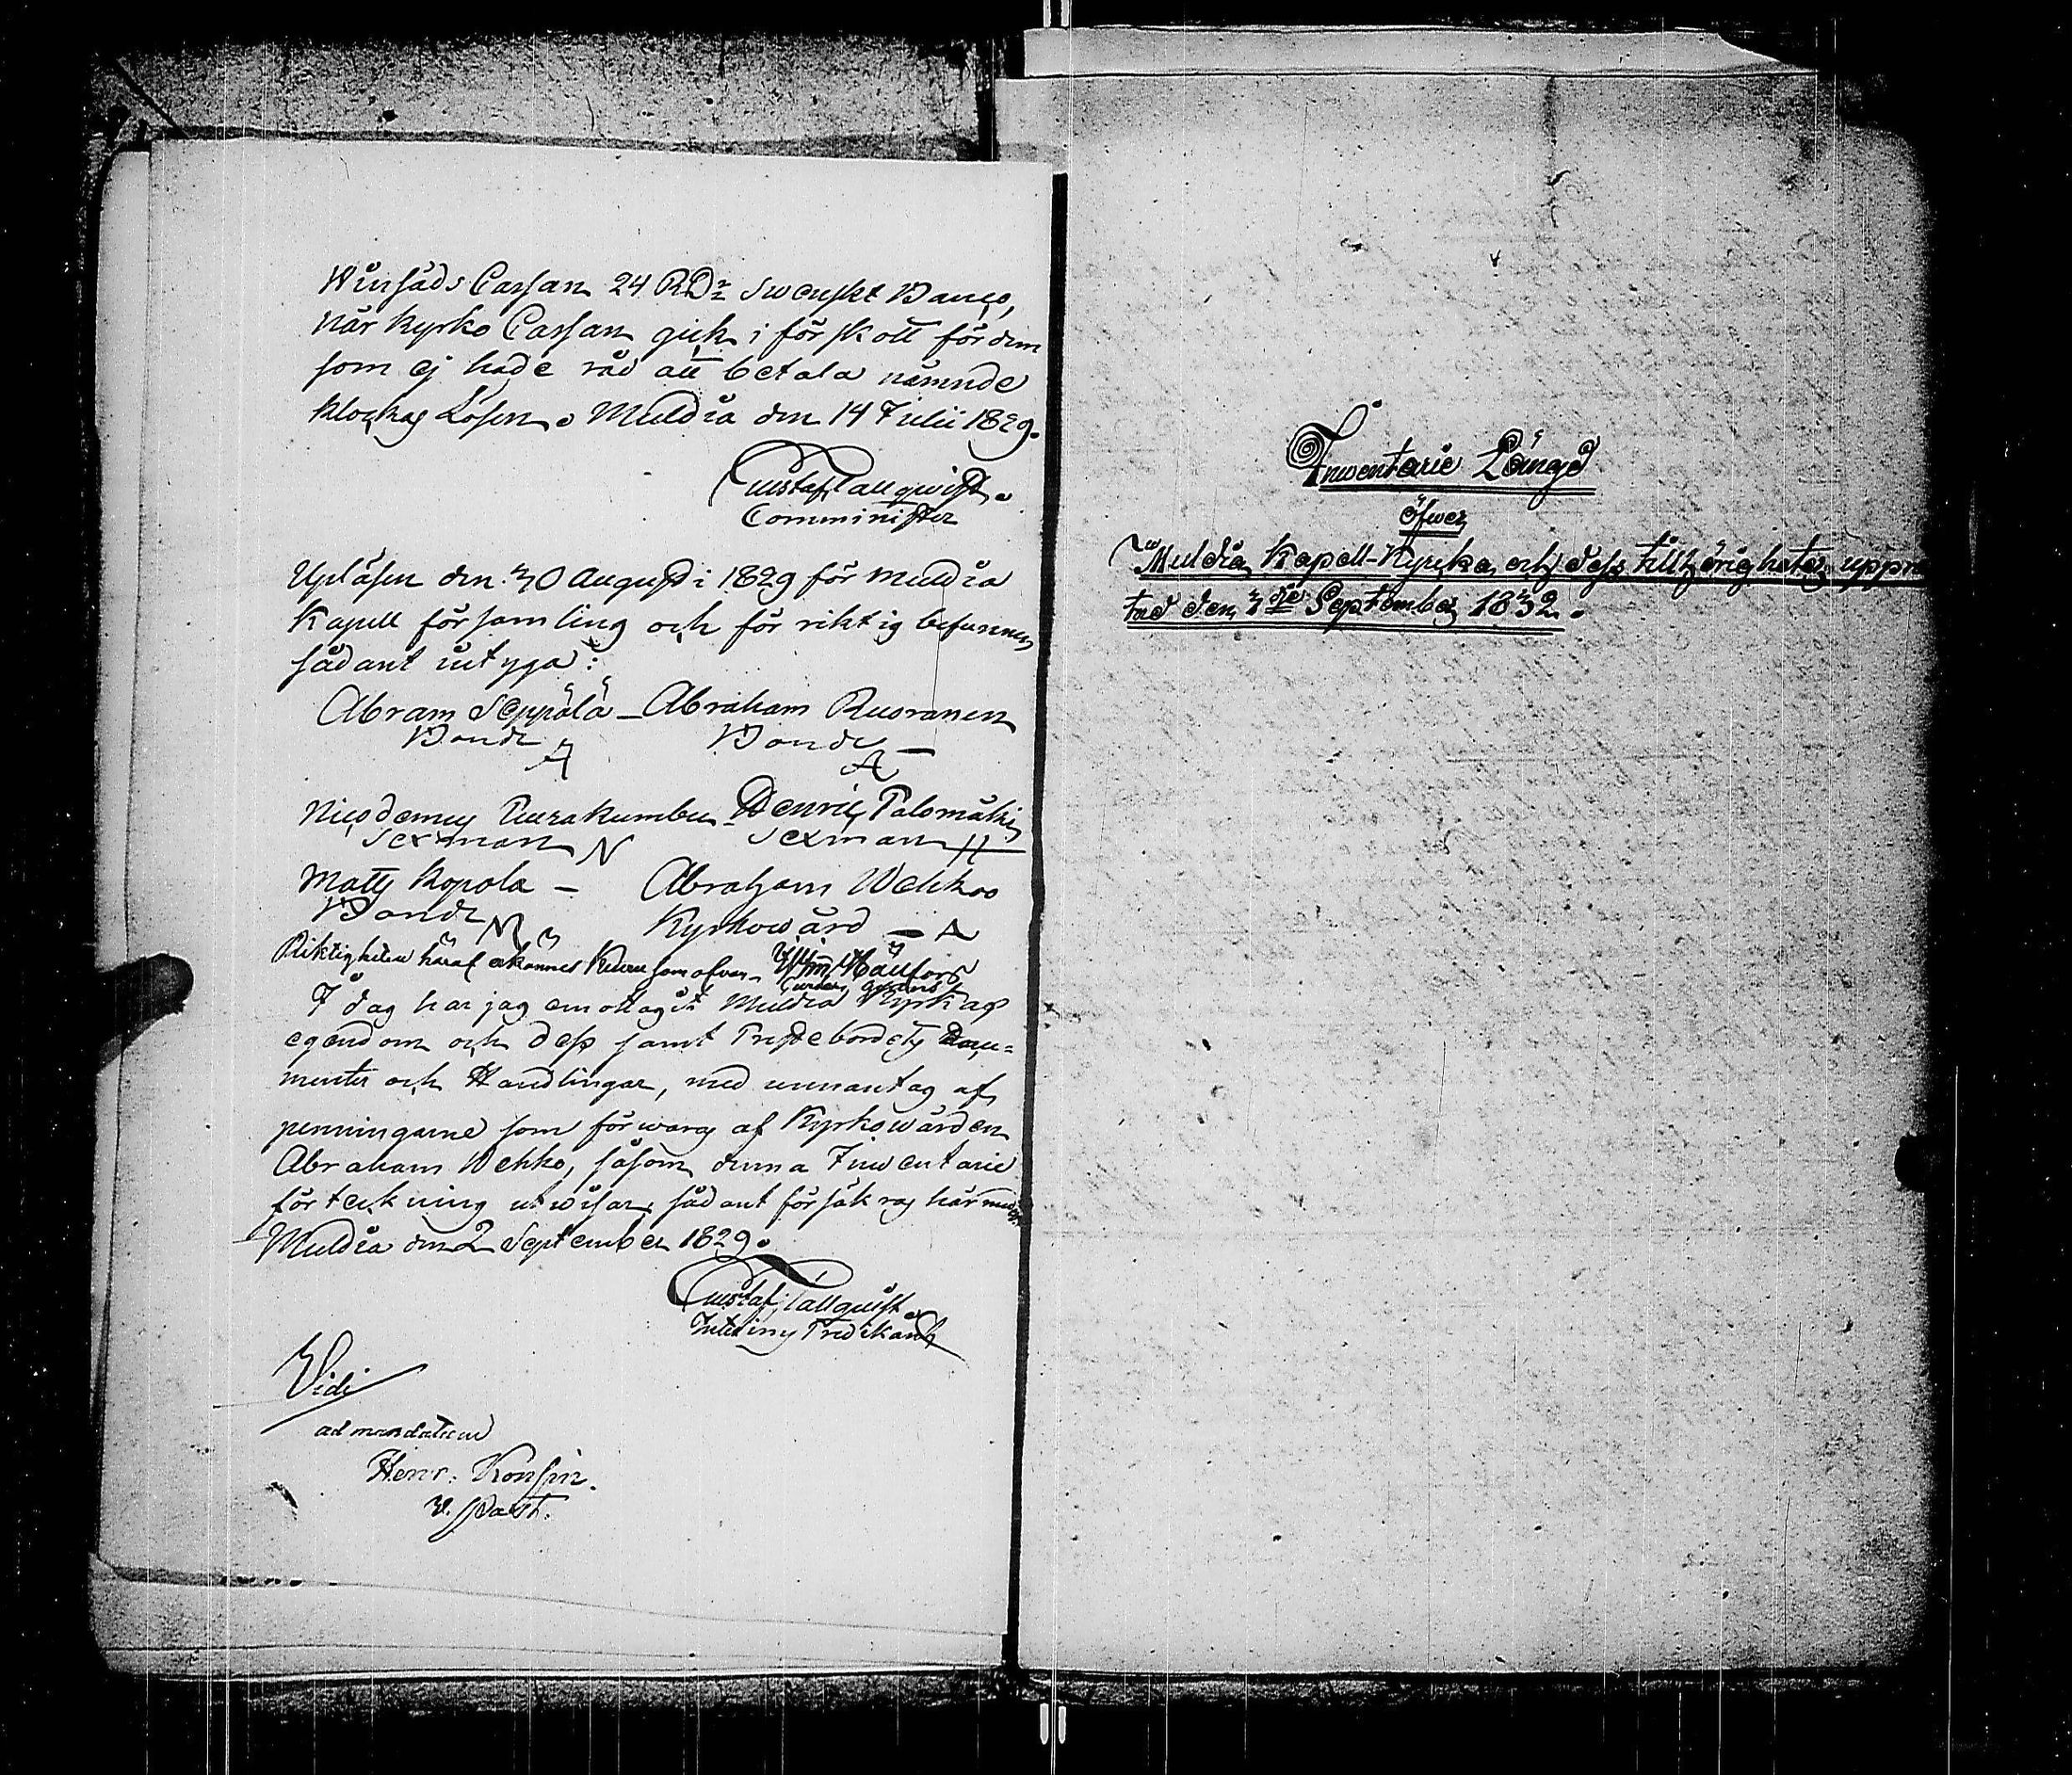 Wårsäds Cassan 24 RDr Swenskt Banco,
när kyrko Cassan gick i förskott för dem
som ej hade råd att betala nämnde
klockas Lösen. Muldia den 14 Julii 1829.
Gustaf Tallqwist.
Comminister
Upläsen den 30 Augusti 1829 för Muldia
Kapell församling och för riktig befunnen
sådant intyga:
Abram Seppälä – Abraham Ruoranen
Bonde A Bonde – A
Nicodemus Purakumbu Henric Palomäki
Sexman N Sexman H
Matts Kopola – Abraham Wehkoo
Bonde M Kyrkowärd – A
Riktigheten häraf erkännes som ofvan
I dag har jag emottagit Muldia Kyrkas
egendom och dess samt Prestebordets Docu=
menter och Handlingar, med unnantag af
penningarne som förwaras af Kyrkowärden
Abraham Wehko, såsom denna Inwentarie
förtekning utwisar, sådant försäkras härmed
Muldia den 2 September 1829.
Gustaf Tallquist
Interims Predikant
Vidi
ad mandatum
Henr. Konsin.
V. Past.
Inwentarie Längd
öfwer
Muldia Kapell-Kyrcka och dess tillhörigheter, uppr
tad den 3die September 1832.